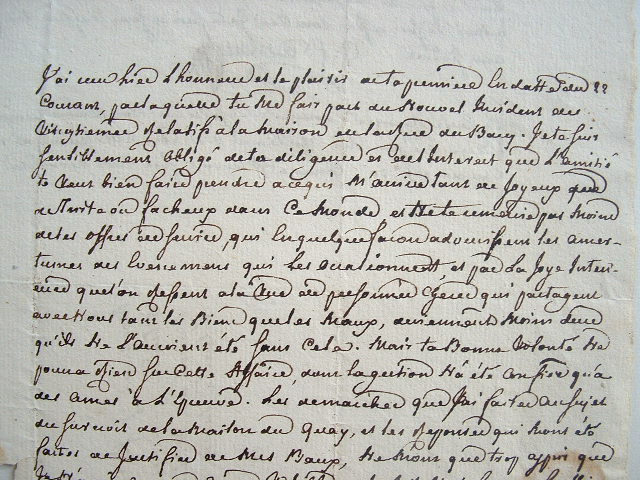 J'ai reçu hier l'honneur et le plaisir de ta premiere en datte du 22
Courant, par laquelle tu me fais part du Nouvel Incident des
relatifs à la Maison en la Rue du Bacq. Je te suis
sensiblement obligé de ta diligence et de l'Interest que l'amitié
te veut bien faire prendre a ce qui m'arrive tant de joyeux que
de triste ou facheux dans ce Monde, et ne te remercie pas moins
de tes offres de service, qui en quelque façon adoucissent les amer-
tumes des Evenemens qui les occasionnent, et par la joye Inter-
ieure que l'on ressent a la vue de personnes cheres qui partagent
avec nous tant les Biens que les Maux, deviennent moins dures
qu'ils ne l'auroient été sans cela. Mais ta Bonne Volonté ne
pourra rien sur cette Affaire, dont la gestion n'a été confiée qu'a
des ames à l'Epreuve. Les demarches que j'ai faites au sujet
du surcroit de la Maison du Quay, et les reponses qui m'ont été
faites de justifier de mes Baux, ne m'ont que trop appris que